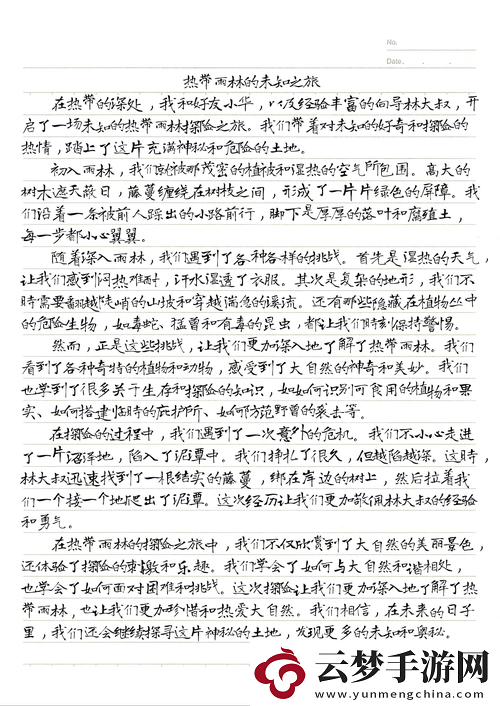 No.
Date
热带雨林的未知之旅
在热带的深处，我和好友小华，以及经验丰富的向导林大叔，开
启了一场未知的热带雨林探险之旅。我们带着对未知的好奇和探险的
热情，踏上了这片充满神秘和危险的土地。
初入雨林，我们就被那茂密的植被和湿热的空气所包围。高大的
树木遮天蔽日，藤蔓缠绕在树枝之间，形成了一片片绿色的屏障。我
们沿着一条被前人踩出的小路前行，脚下是厚厚的落叶和腐殖土，
每一步都小心翼翼。
随着深入雨林，我们遇到了各种各样的挑战。首先是湿热的天气，
让我们感到闷热难耐，汗水湿透了衣服。其次是复杂的地形，我们不
时需要翻越陡峭的山坡和穿越湍急的溪流。还有那些隐藏在植物丛中
的危险生物，如毒蛇、猛兽和有毒的昆虫，都让我们时刻保持警惕。
然而，正是这些挑战，让我们更加深入地了解了热带雨林。我们
看到了各种奇特的植物和动物，感受到了大自然的神奇和美妙。我们
也学到了很多关于生存和探险的知识，如如何识别可食用的植物和果
实、如何搭建临时的庇护所、如何防范野兽的袭击等。
在探险的过程中，我们遇到了一次意外的危机。我们不小心走进
了一片沼泽地，陷入了泥潭中。我们挣扎了很久，但越陷越深。这时，
林大叔迅速找到了一根结实的藤蔓，绑在岸边的树上，然后拉着我
们一个接一个地爬出了泥潭。这次经历让我们更加敬佩林大叔的经验
和勇气。
在热带雨林的探险之旅中，我们不仅欣赏到了大自然的美丽景色，
还体验了探险的刺激和乐趣。我们学会了如何与大自然和谐相处，
也学会了如何面对困难和挑战。这次探险让我们更加深入地了解了热
带雨林，也让我们更加珍惜和热爱大自然。我们相信，在未来的日子
里，我们还会继续探寻这片神秘的土地，发现更多的未知和奥秘。
云梦手游网
www.yunmengchina.com